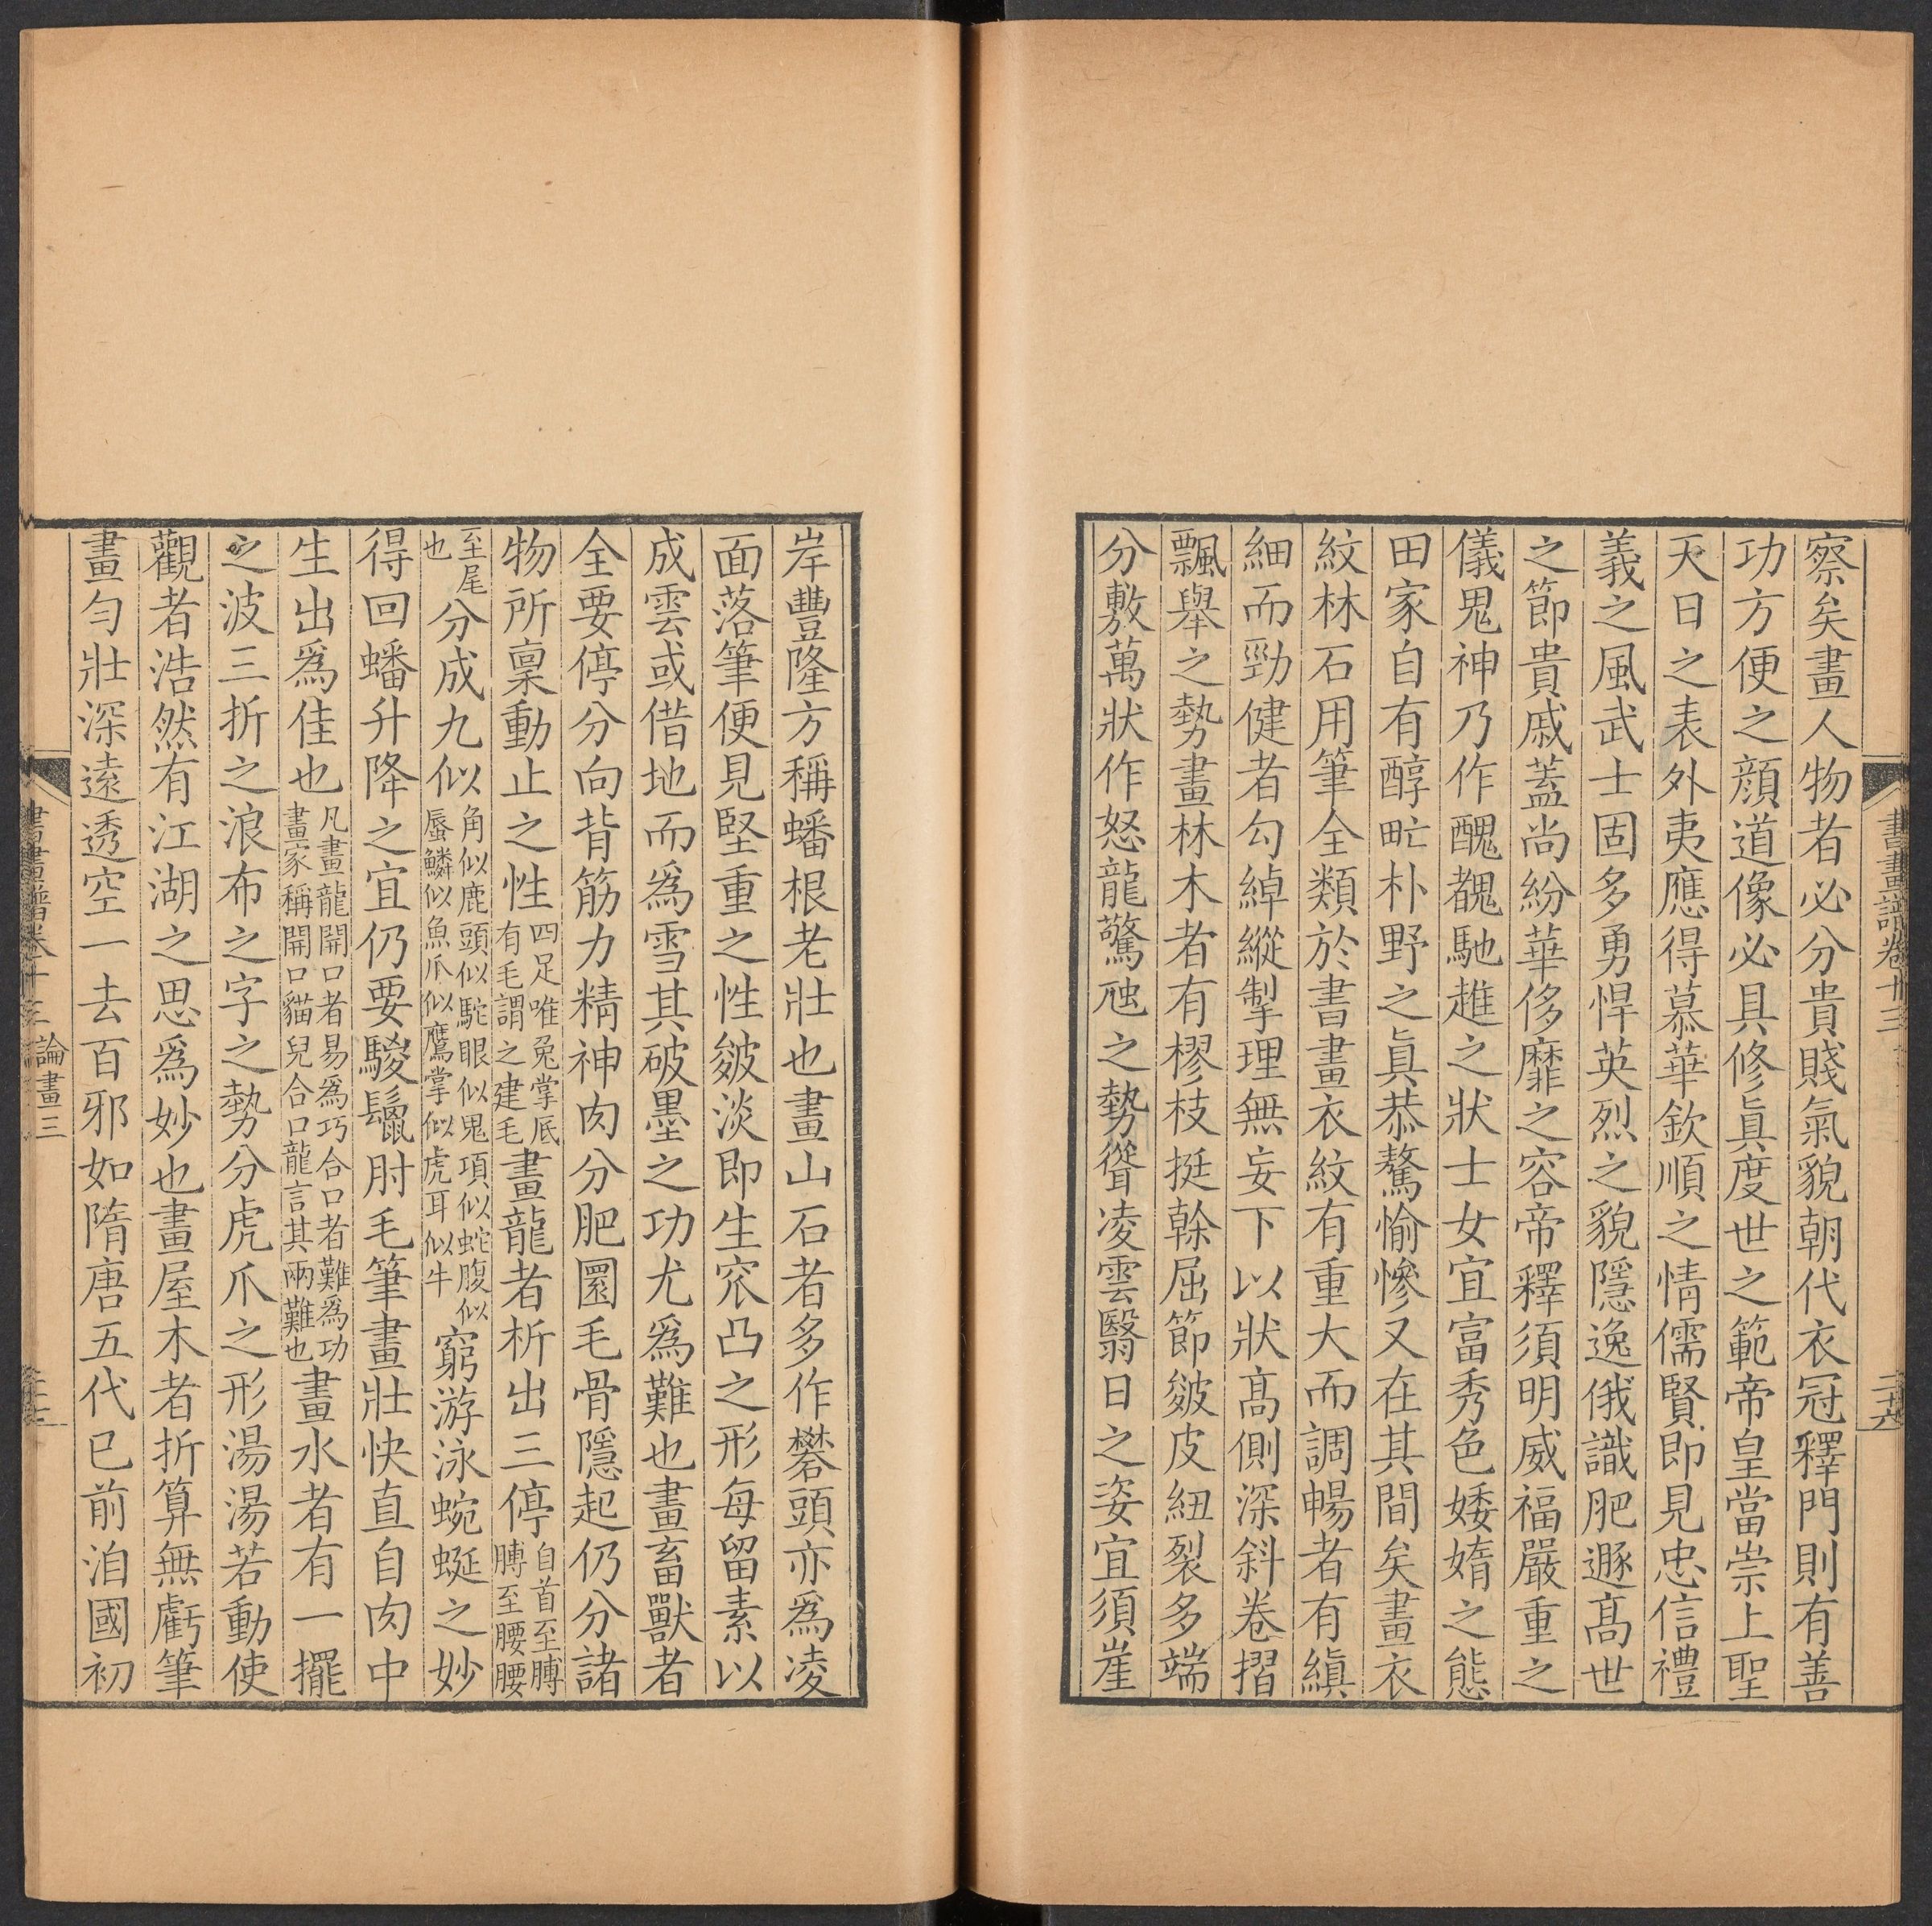 書畫譜卷十三
二十六
察矣畫人物者必分貴賤氣貌朝代衣冠釋門則有善
功方便之顔道像必具修眞度世之範帝皇當崇上聖
天日之表外夷應得慕華欽順之情儒賢即見忠信禮
義之風武士固多勇悍英烈之貌隱逸俄識肥遯髙世
之節貴戚蓋尚紛華侈靡之容帝釋須明威福嚴重之
儀鬼神乃作醜䰩馳趡之狀士女宜富秀色婑媠之態
田家自有醇甿朴野之眞恭驁愉慘又在其間矣畫衣
紋林石用筆全類於書畫衣紋有重大而調暢者有縝
細而勁健者勾綽縱掣理無妄下以狀髙側深斜卷摺
飄舉之勢畫林木者有樛枝挺榦屈節皴皮紐裂多端
分敷萬狀作怒龍驚虺之勢聳凌雲翳日之姿宜須崖
岸豐隆方稱蟠根老壯也畫山石者多作礬頭亦爲凌
面落筆便見堅重之性皴淡即生窊凸之形每留素以
成雲或借地而爲雪其破墨之功尤爲難也畫畜獸者
全要停分向背筋力精神肉分肥圓毛骨隱起仍分諸
物所稟動止之性四足唯兔掌底有毛謂之建毛畫龍者析出三停自首至膊膊至腰腰
至尾也分成九似角似鹿頭似駝眼似鬼項似蛇腹似蜃鱗似魚爪似鷹掌似虎耳似牛窮游泳蜿蜒之妙
得回蟠升降之宜仍要騣鬣肘毛筆畫壯快直自肉中
生出爲佳也凡畫龍開口者易爲巧合口者難爲功畫家稱開口貓兒合口龍言其兩難也畫水者有一擺
之波三折之浪布之字之勢分虎爪之形湯湯若動使
觀者浩然有江湖之思爲妙也畫屋木者折算無虧筆
畫勻壯深遠透空一去百邪如隋唐五代已前洎國初
書畫譜卷十三 論畫三
二十六